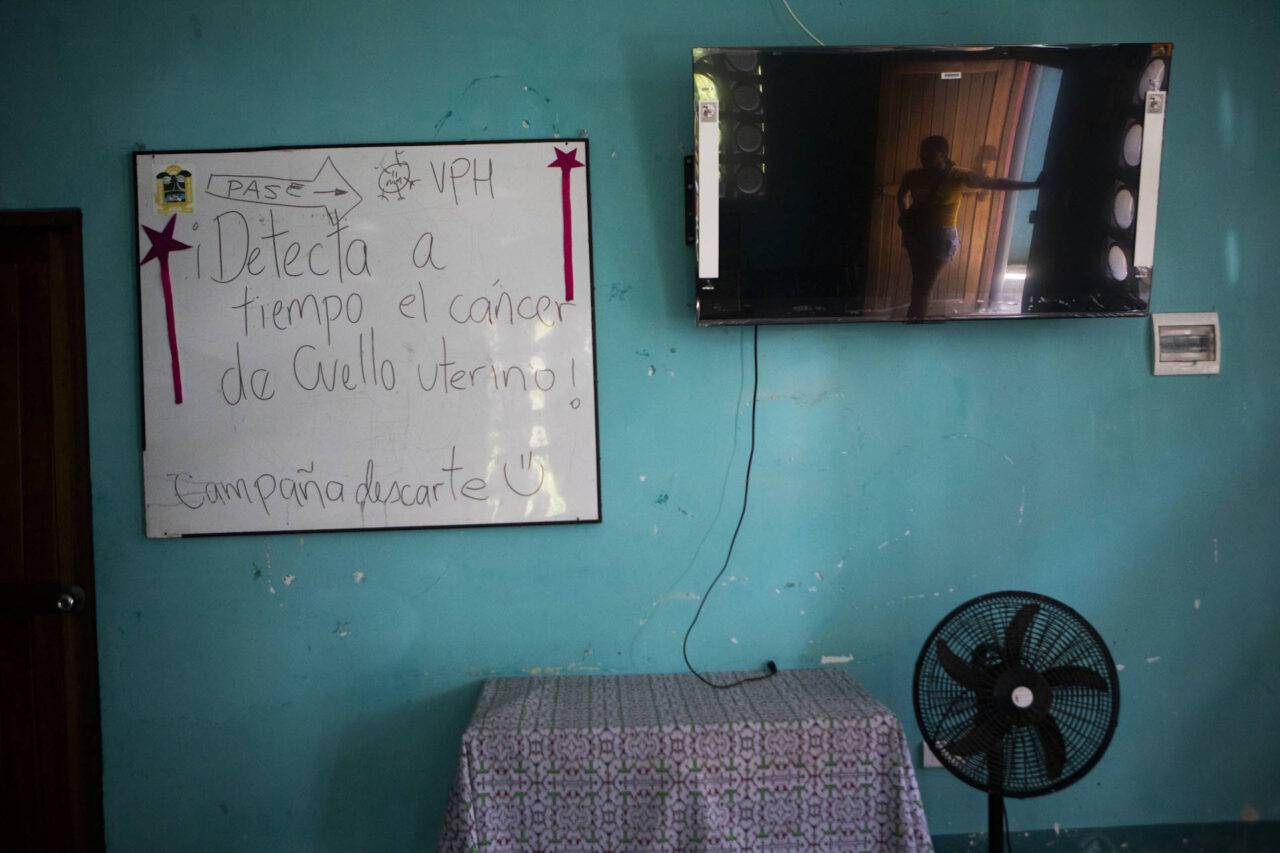 PASE VPH
¡Detecta a
tiempo el cáncer
de Cuello uterino!
Campaña descarte